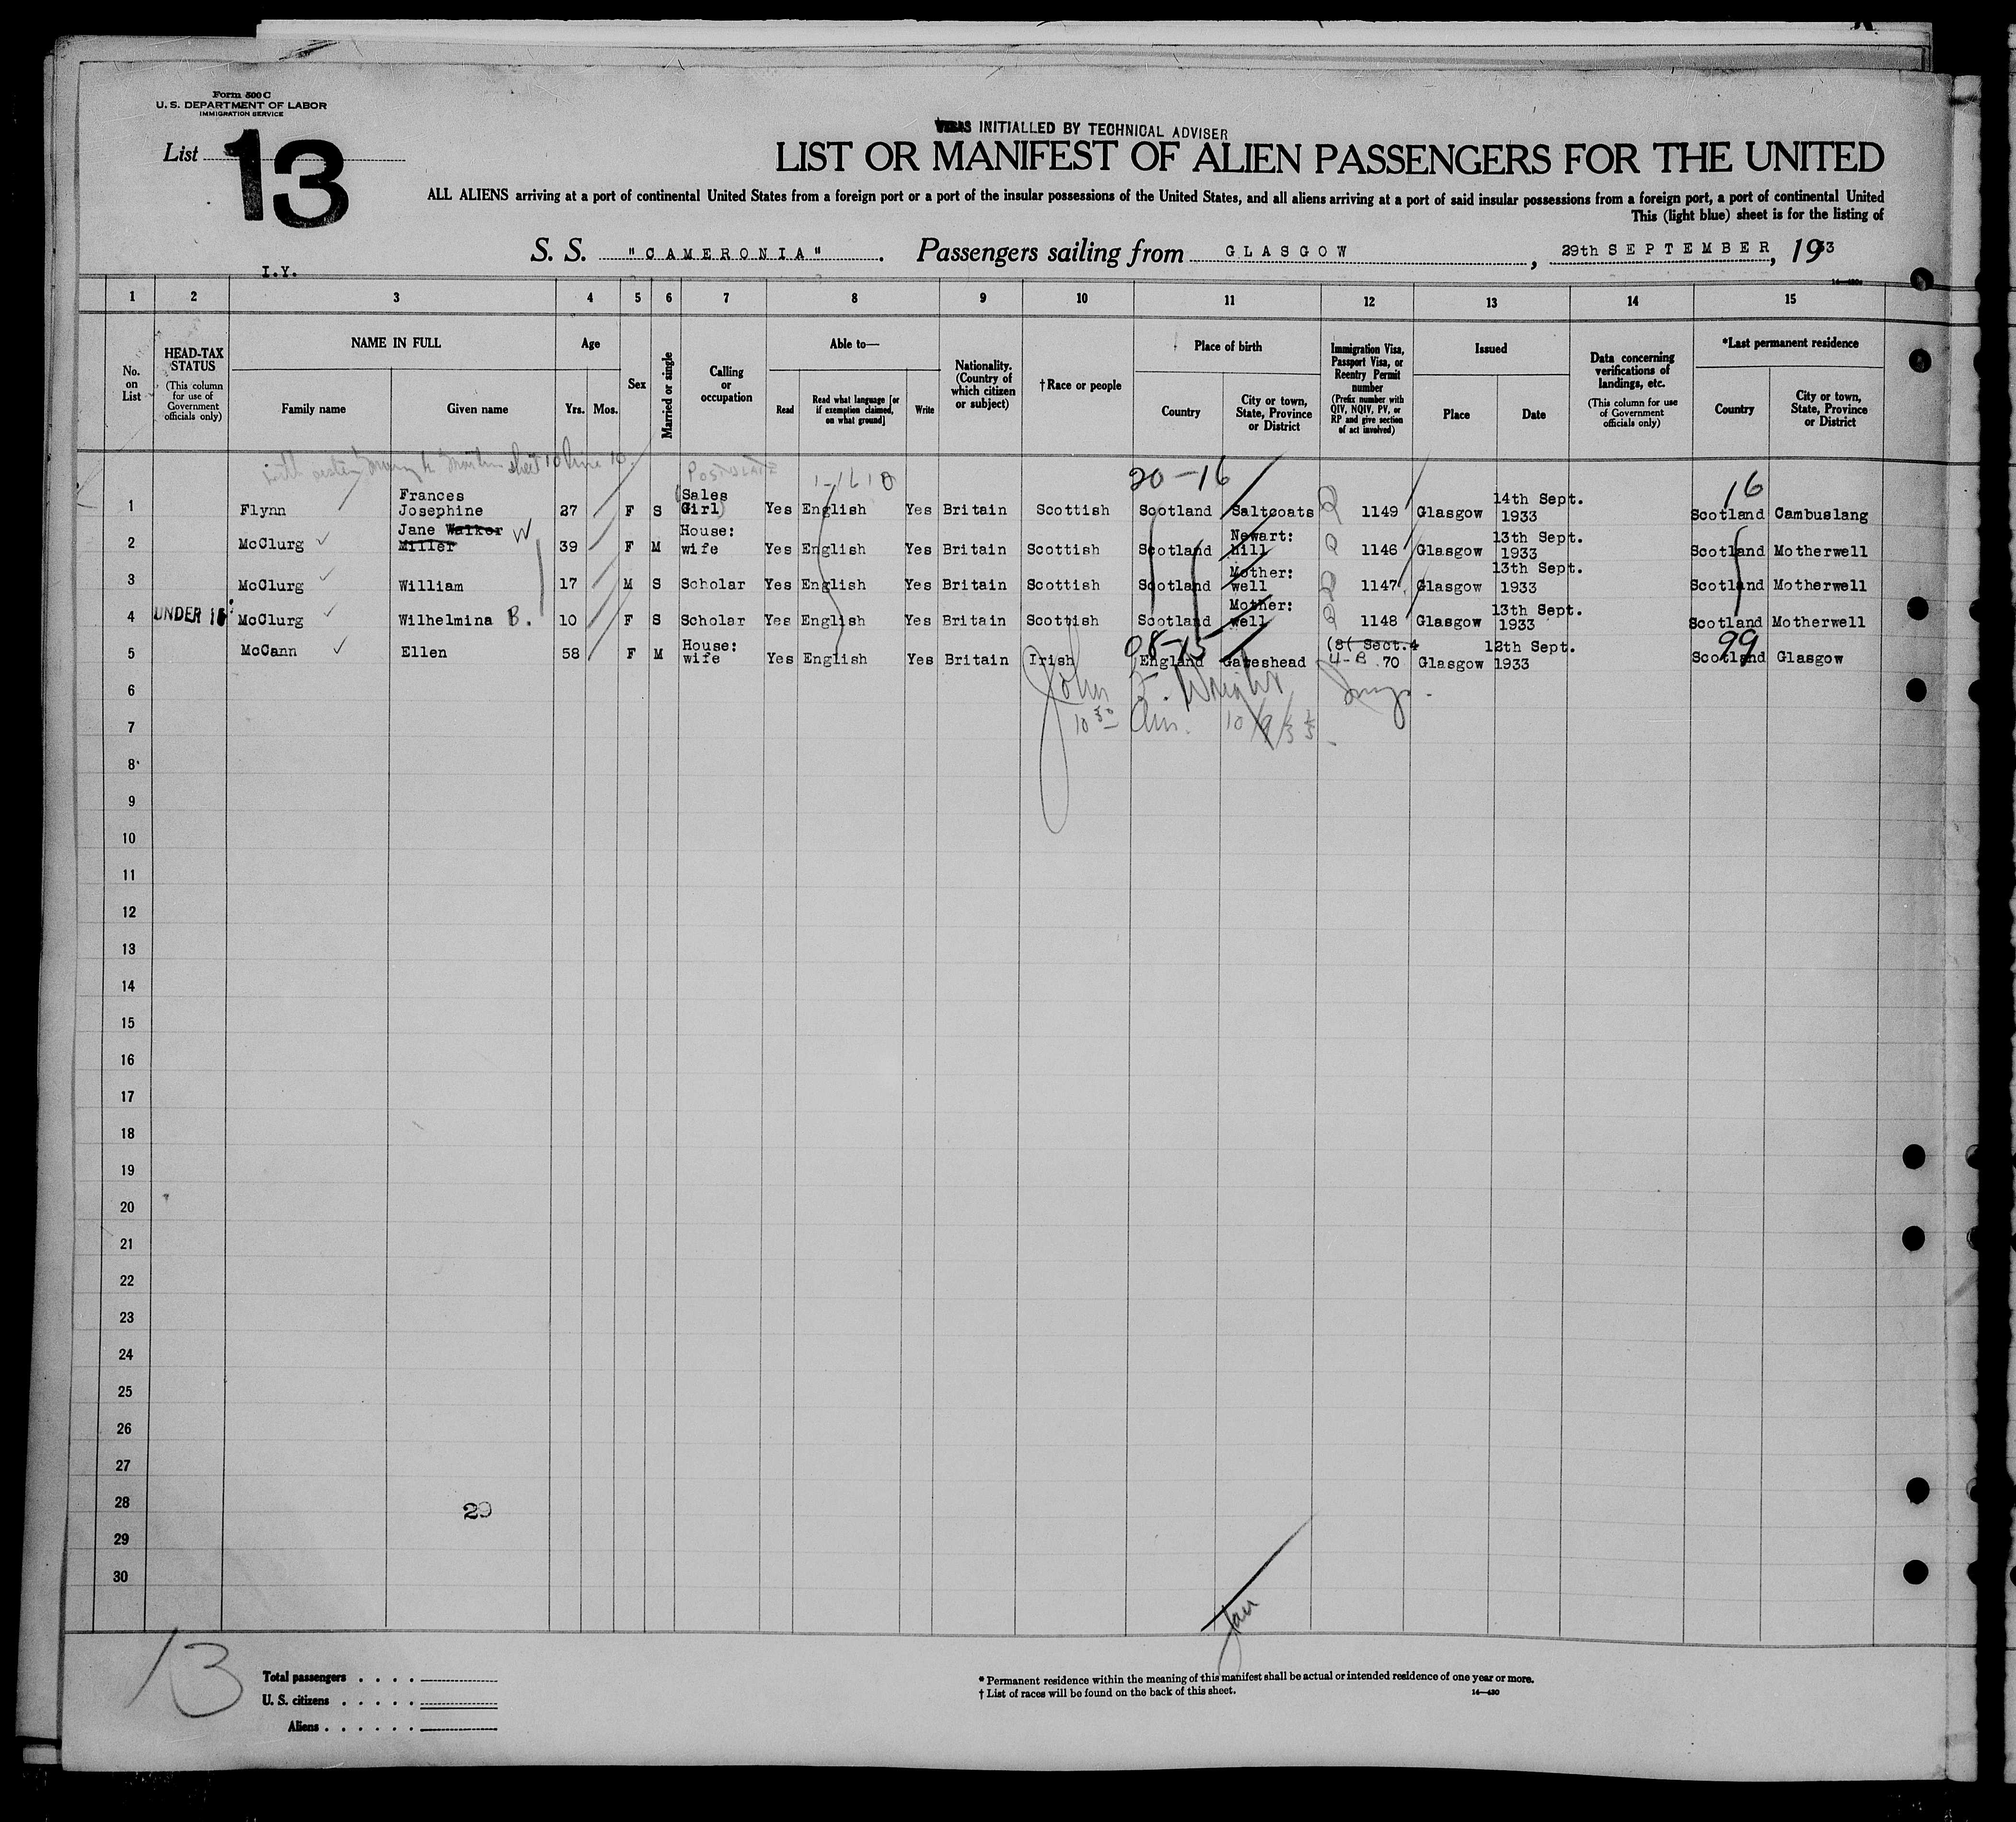 Form 500 C
U. S. DEPARTMENT OF LABOR
IMMIGRATION SERVICE
List 13
VISAS INITIALLED BY TECHNICAL ADVISER
LIST OR MANIFEST OF ALIEN PASSENGERS FOR THE UNITED
ALL ALIENS arriving at a port of continental United States from a foreign port or a port of the insular possessions of the United States, and all aliens arriving at a port of said insular possessions from a foreign port, a port of continental United
This (light blue) sheet is for the listing of
S. S. "CAMERONIA". Passengers sailing from GLASGOW, 29th SEPTEMBER, 1933
I.Y.
1 2 3 4 5 6 7 8 9 10 11 12 13 14 15
No. on List
HEAD-TAX STATUS (This column for use of Government officials only)
NAME IN FULL
Family name
Given name
Age
Yrs.
Mos.
Sex
Married or single
Calling or occupation
Able to—
Read
Read what language [or if exemption claimed, on what ground]
Write
Nationality. (Country of which citizen or subject)
†Race or people
Place of birth
Country
City or town, State, Province or District
Immigration Visa, Passport Visa, or Reentry Permit number (Prefix number with QIV, NQIV, PV, or RP and give section of act involved)
Issued
Place
Date
Data concerning verifications of landings, etc. (This column for use of Government officials only)
*Last permanent residence
Country
City or town, State, Province or District
sheet 10 line 10
POSTULATE
20-16
16
1 Flynn Frances Josephine 27 F S Sales Girl Yes English Yes Britain Scottish Scotland Saltcoats 1149 Glasgow 14th Sept. 1933 Scotland Cambuslang
2 McClurg Jane Walker Miller W 39 F M House: wife Yes English Yes Britain Scottish Scotland Newart: hill 1146 Glasgow 13th Sept. 1933 Scotland Motherwell
3 McClurg William 17 M S Scholar Yes English Yes Britain Scottish Scotland Mother: well 1147 Glasgow 13th Sept. 1933 Scotland Motherwell
4 UNDER 16 McClurg Wilhelmina B. 10 F S Scholar Yes English Yes Britain Scottish Scotland Mother: well 1148 Glasgow 13th Sept. 1933 Scotland Motherwell
08-15
99
5 McCann Ellen 58 F M House: wife Yes English Yes Britain Irish England Gateshead Sect. 4 70 Glasgow 12th Sept. 1933 Scotland Glasgow
6 John F. Wright
7 10 30 Am. 10/9/33
8
9
10
11
12
13
14
15
16
17
18
19
20
21
22
23
24
25
26
27
28 29
29
30
13
Total passengers . . . .
U. S. citizens . . . . .
Aliens . . . . . .
* Permanent residence within the meaning of this manifest shall be actual or intended residence of one year or more.
† List of races will be found on the back of this sheet.
14—430